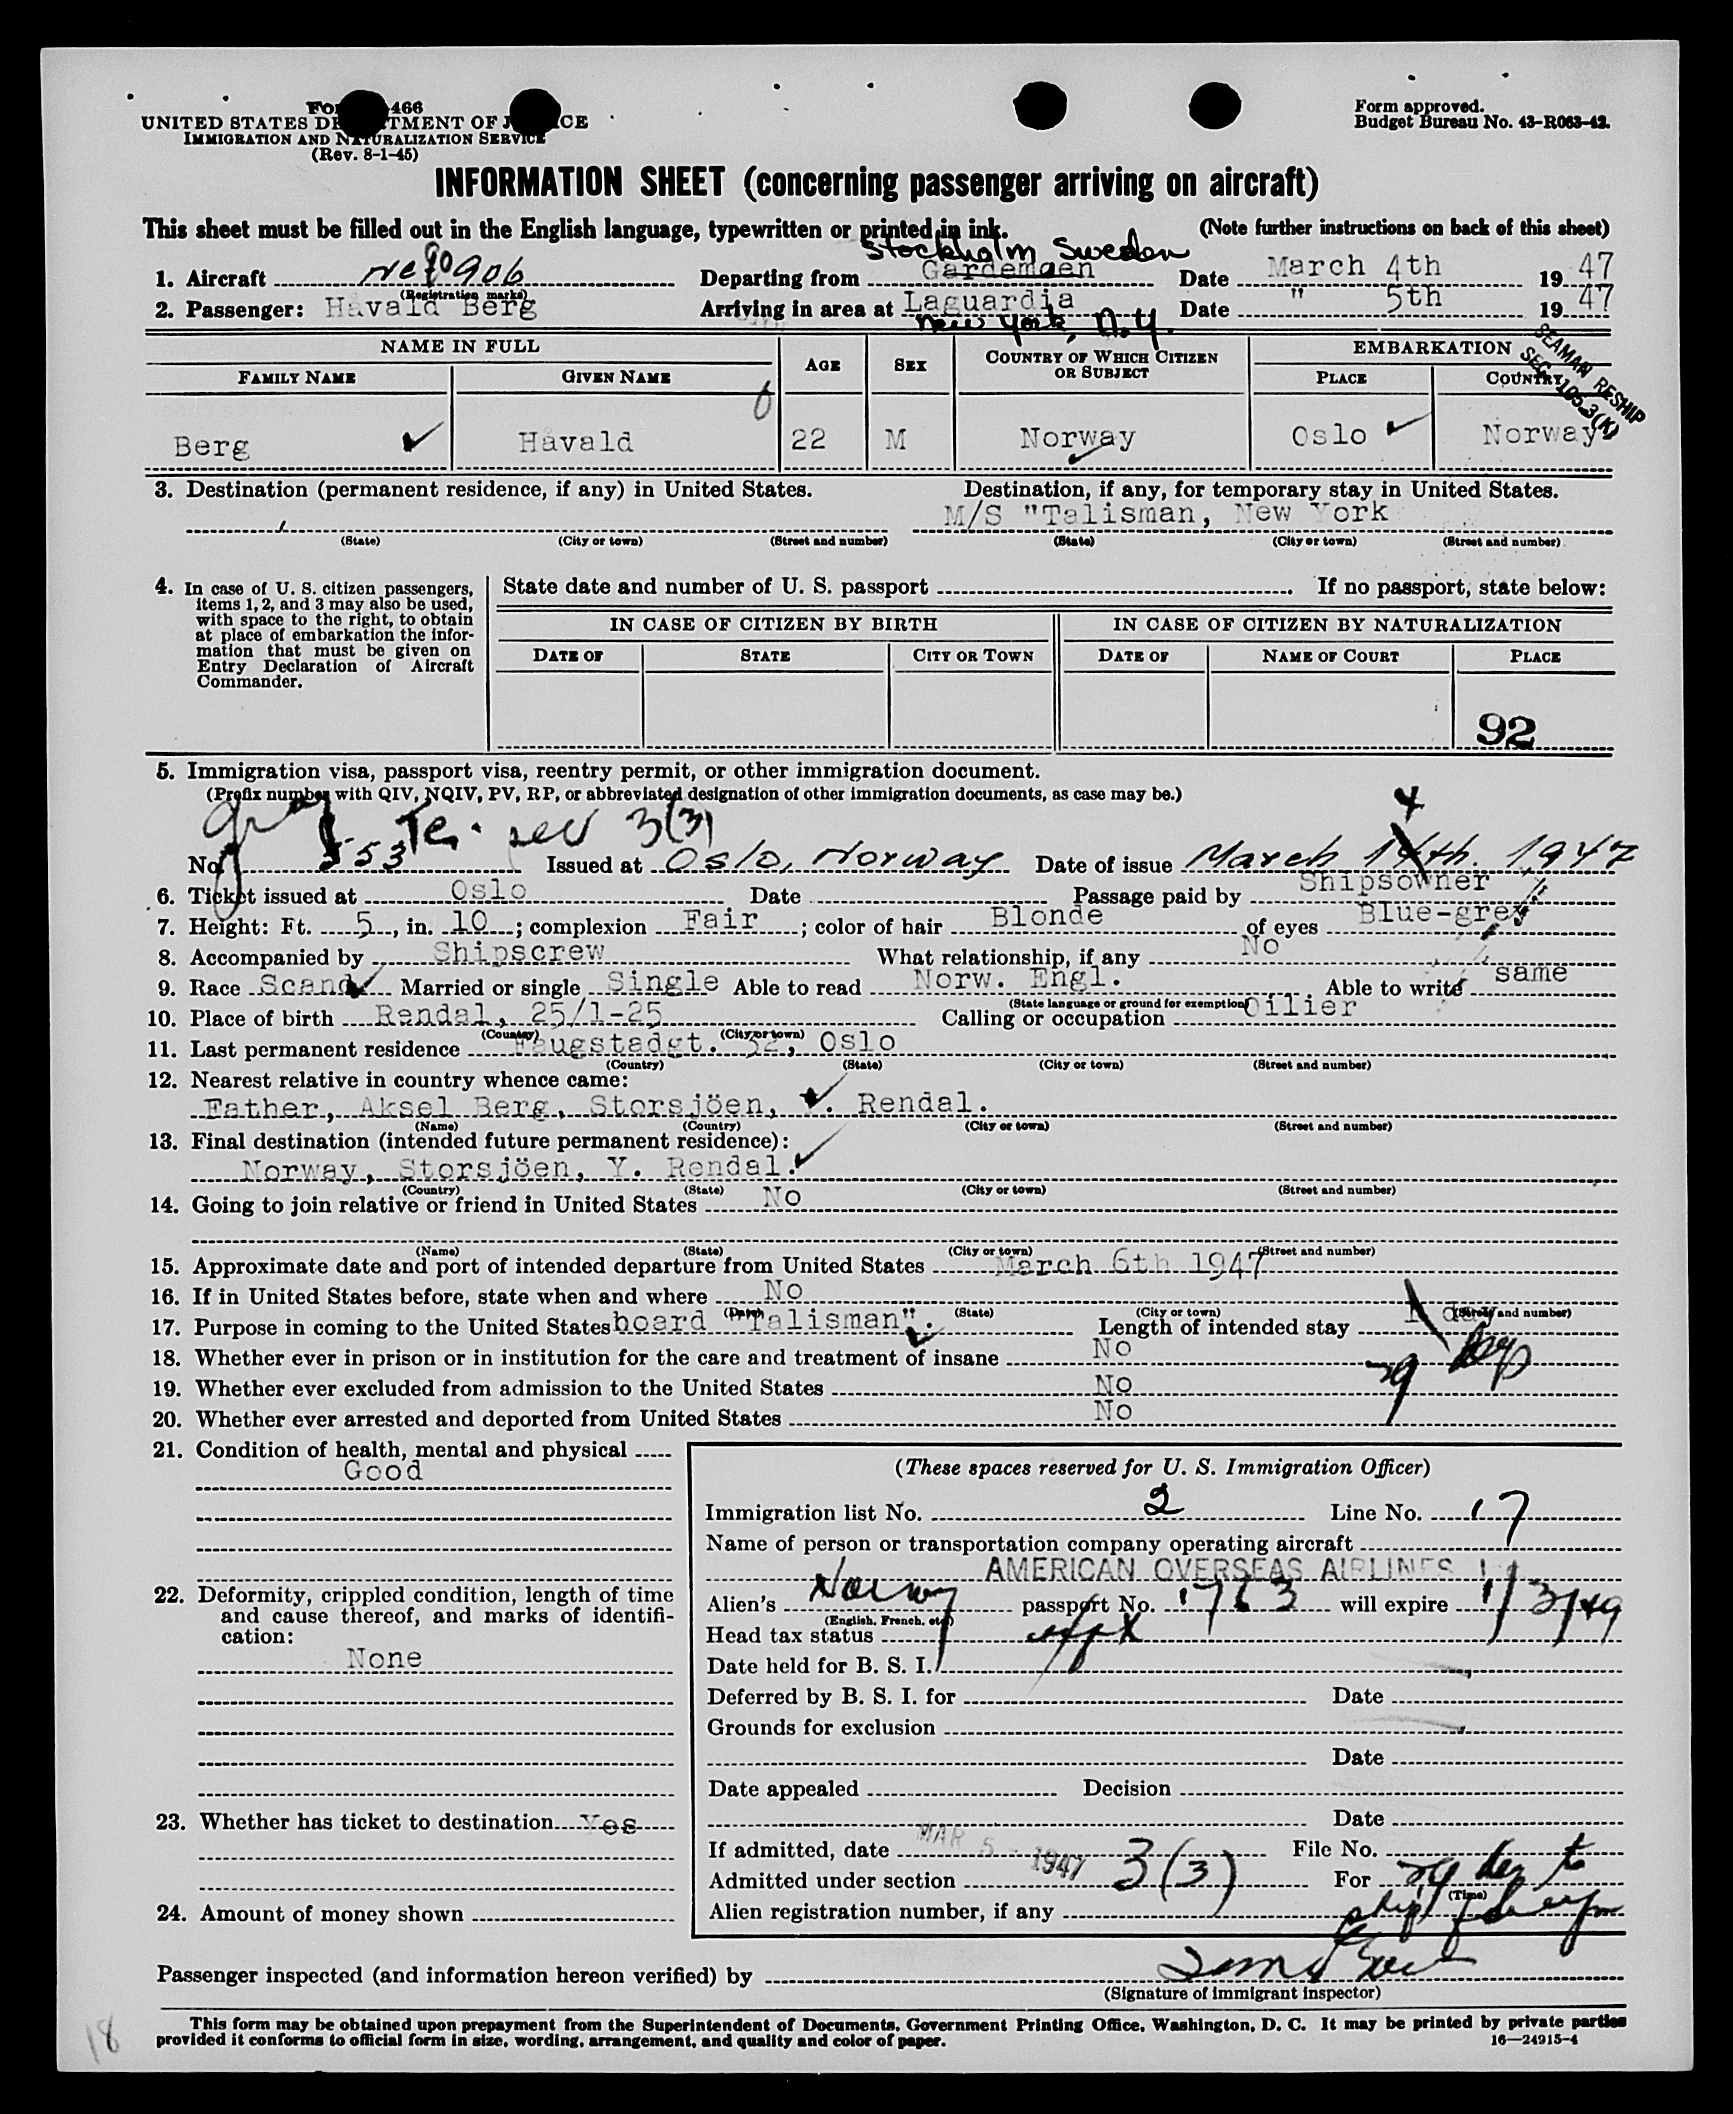 Form 466
UNITED STATES DEPARTMENT OF JUSTICE
IMMIGRATION AND NATURALIZATION SERVICE
(Rev. 8-1-45)
Form approved.
Budget Bureau No. 43-R063-42.
INFORMATION SHEET (concerning passenger arriving on aircraft)
This sheet must be filled out in the English language, typewritten or printed in ink. (Note further instructions on back of this sheet)
Stockholm Sweden
1. Aircraft 90906 Departing from Gardemoen Date March 4th 1947
(Registration marks)
2. Passenger: Håvald Berg Arriving in area at Laguardia Date " 5th 1947
New York, N.Y.
SEAMAN RESHIP
SEC. 105.3(K)
NAME IN FULL AGE SEX COUNTRY OF WHICH CITIZEN OR SUBJECT EMBARKATION
FAMILY NAME GIVEN NAME PLACE COUNTRY
Berg Håvald 22 M Norway Oslo Norway
3. Destination (permanent residence, if any) in United States. Destination, if any, for temporary stay in United States.
M/S "Talisman, New York
(State) (City or town) (Street and number) (State) (City or town) (Street and number)
4. In case of U. S. citizen passengers, items 1, 2, and 3 may also be used, with space to the right, to obtain at place of embarkation the information that must be given on Entry Declaration of Aircraft Commander.
State date and number of U. S. passport If no passport, state below:
IN CASE OF CITIZEN BY BIRTH IN CASE OF CITIZEN BY NATURALIZATION
DATE OF STATE CITY OR TOWN DATE OF NAME OF COURT PLACE
92
5. Immigration visa, passport visa, reentry permit, or other immigration document.
(Prefix number with QIV, NQIV, PV, RP, or abbreviated designation of other immigration documents, as case may be.)
sec 3(3)
4
No. 553 Issued at Oslo, Norway Date of issue March 14th. 1947
6. Ticket issued at Oslo Date Passage paid by Shipsowner
7. Height: Ft. 5, in. 10; complexion Fair; color of hair Blonde of eyes Blue-grey
8. Accompanied by Shipscrew What relationship, if any No
9. Race Scand Married or single Single Able to read Norw. Engl. Able to write same
(State language or ground for exemption)
10. Place of birth Rendal, 25/1-25 Calling or occupation Oilier
(Country) (City or town)
11. Last permanent residence Haugstadgt. 32, Oslo
(Country) (State) (City or town) (Street and number)
12. Nearest relative in country whence came:
Father, Aksel Berg, Storsjöen, Y. Rendal.
(Name) (Country) (City or town) (Street and number)
13. Final destination (intended future permanent residence):
Norway, Storsjöen, Y. Rendal.
(Country) (State) (City or town) (Street and number)
14. Going to join relative or friend in United States No
(Name) (State) (City or town) (Street and number)
15. Approximate date and port of intended departure from United States March 6th 1947
16. If in United States before, state when and where No
(Date) (State) (City or town) (Street and number)
17. Purpose in coming to the United States board "Talisman". Length of intended stay 1 day
18. Whether ever in prison or in institution for the care and treatment of insane No
19. Whether ever excluded from admission to the United States No
29 days
20. Whether ever arrested and deported from United States No
21. Condition of health, mental and physical
Good
22. Deformity, crippled condition, length of time and cause thereof, and marks of identification:
None
23. Whether has ticket to destination Yes
24. Amount of money shown
(These spaces reserved for U. S. Immigration Officer)
Immigration list No. 2 Line No. 17
Name of person or transportation company operating aircraft
AMERICAN OVERSEAS AIRLINES
Alien's Norway passport No. 1763 will expire 1/3/49
(English, French, etc.)
Head tax status
Date held for B. S. I.
Deferred by B. S. I. for Date
Grounds for exclusion
Date
Date appealed Decision
Date
If admitted, date MAR 5 - 1947 File No.
Admitted under section 3(3) For 29 days to
(Time)
Alien registration number, if any
Passenger inspected (and information hereon verified) by
(Signature of immigrant inspector)
This form may be obtained upon prepayment from the Superintendent of Documents, Government Printing Office, Washington, D. C. It may be printed by private parties
provided it conforms to official form in size, wording, arrangement, and quality and color of paper. 16—24915-4
18